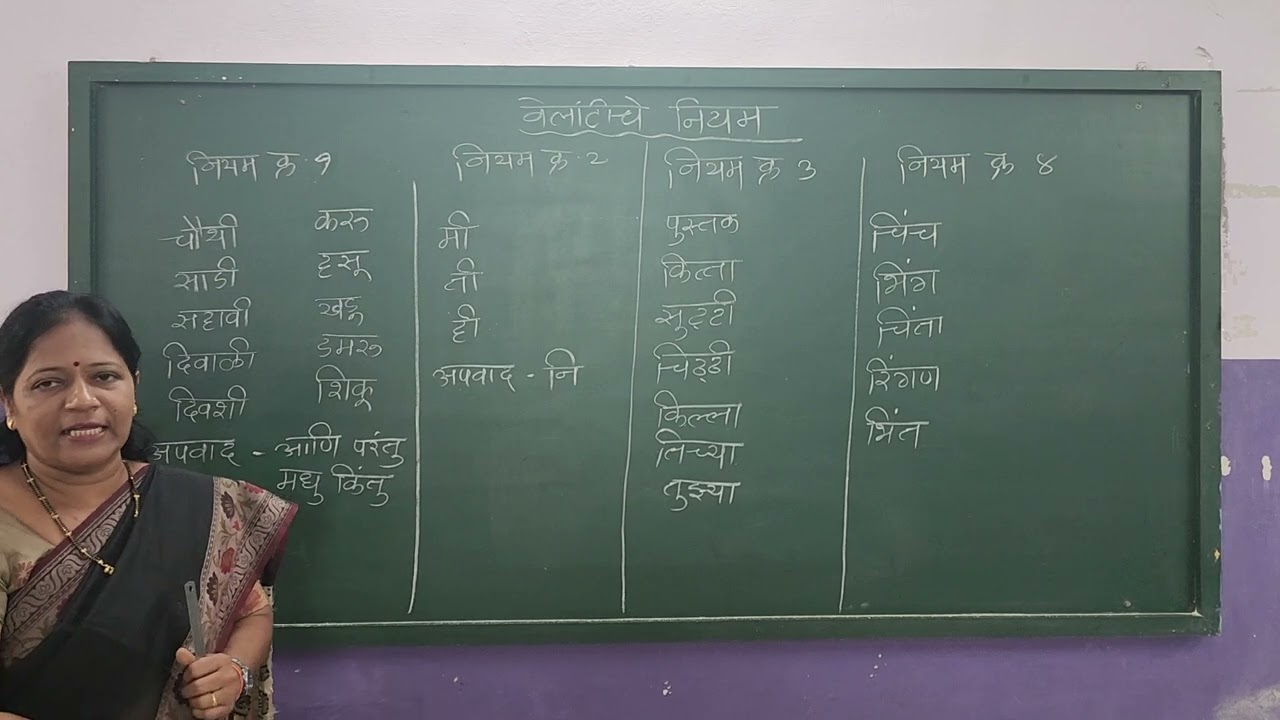 वेलांटीचे नियम
नियम क्र १
चौथी करू
साडी हसू
सहावी खडू
दिवाळी डमरू
दिवशी शिकू
अपवाद - आणि परंतु
मधु किंतु
नियम क्र २
मी
ती
ही
अपवाद - नि
नियम क्र ३
पुस्तक
कित्ता
सुट्टी
चिठ्ठी
किल्ला
तिच्या
तुझ्या
नियम क्र ४
चिंच
भिंग
चिंता
रिंगण
भिंत